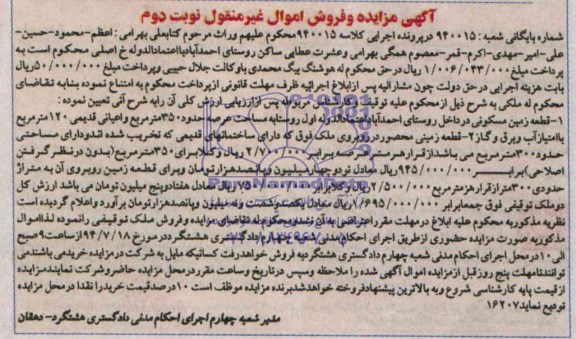 آگهی مزایده وفروش اموال غیرمنقول نوبت دوم
شماره بایگانی شعبه: ۹۴۰۰۱۵ درپرونده اجرایی کلاسه ۹۴۰۰۱۵محکوم علیهم وراث مرحوم کتابعلی بهرامی: اعظم-محمود-حسین-
علی-امیر-مهدی-اکرم-قمر-معصوم همگی بهرامی وعشرت عطایی ساکن روستای احمدآبادباعتمادالدوله خ اصلی محکوم است به
پرداخت مبلغ۱/۰۰۶/۰۴۳/۰۰۰ریال درحق محکوم له هوشنگ بیگ محمدی باوکالت جلال حبیبی وپرداخت مبلغ۵۰/۰۰۰/۰۰۰ریال
بابت هزینه اجرایی درحق دولت چون مشارالیه پس ازابلاغ اجرائیه ظرف مهلت قانونی ازپرداخت محکوم به امتناع نموده بنابه تقاضای
محکوم له ملکی به شرح ذیل از محکوم علیه توقیف وکارشناس مربوطه پس ازارزیابی ارزش کلی آن رابه شرح آتی تعیین نموده:
۱-قطعه زمین مسکونی درداخل روستای احمدآباداعتمادالدوله اول روستابه مساحت عرصه حدود۳۵۰مترمربع واعیانی قدیمی ۱۲۰مترمربع
باامتیازآب وبرق وگاز۲-قطعه زمینی محصوردرروبروی ملک فوق که دارای ساختمانهای قدیمی که تخریب شده اندودارای مساحتی
حدود۳۰۰مترمربع می باشدازقرارهرمترعرصه برابر۲/۷۰۰/۰۰۰ریال وکلابرای۳۵۰مترمربع(بدون درنظرگرفتن
اصلاحی)برابر۹۴۵/۰۰۰/۰۰۰ریال معادل نودوچهارمیلیون وپانصدهزارتومان وبرای قطعه زمین روبروی آن به متراژ
حدودی۳۰۰مترازقرارهرمترمربع۲/۵۰۰/۰۰۰ریال وکلا۷۵۰/۰۰۰/۰۰۰ریال معادل هفتادوپنج میلیون تومان می باشد ارزش کل
دوملک توقیفی فوق جمعابرابر۱/۶۹۵/۰۰۰/۰۰۰ریال معادل یکصدوشصت ونه میلیون وپانصدهزارتومان برآورد واعلام گردیده است
نظریه مذکوربه محکوم علیه ابلاغ درمهلت مقرراعتراضی به آن نشدومحکوم له تقاضای مزایده وفروش ملک توقیفی رانموده لذااموال
مذکوربه صورت مزایده حضوری ازطریق اجرای احکام مدنی شعبه چهارم دادگستری هشتگرددرمورخ ۹۴/۷/۱۸ ازساعت۹صبح
الی۱۰درمحل اجرای احکام مدنی شعبه چهارم دادگستری هشتگردبه فروش خواهدرفت کسانیکه مایل به شرکت درمزایده خریدمی باشندمی
توانندتامهلت پنج روزقبل ازمزایده اموال آگهی شده را ملاحظه وسپس درتاریخ وساعت مقرردرمحل مزایده حاضروشرکت نمایندمزایده
از قیمت پایه کارشناسی شروع وبه بالاترین پیشنهادفروخته خواهدشدبرنده مزایده موظف است ۱۰درصدقیمت خریدرا نقدا درمحل مزایده
تودیع نماید۱۶۲۰۷
مدیر شعبه چهارم اجرای احکام مدنی دادگستری هشتگرد-دهقان